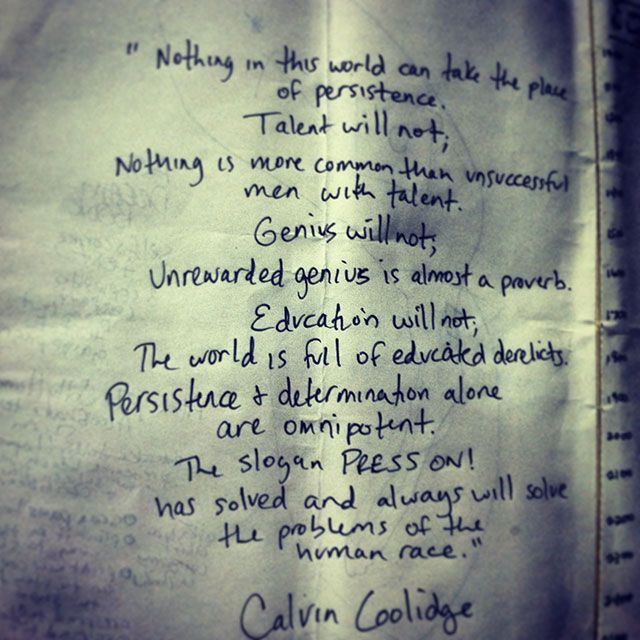 " Nothing in this world can take the place
of persistence.
Talent will not;
Nothing is more common than unsuccessful
men with talent.
Genius will not;
Unrewarded genius is almost a proverb.
Education will not;
The world is full of educated derelicts.
Persistence & determination alone
are omnipotent.
The slogan PRESS ON!
has solved and always will solve
the problems of the
human race."
Calvin Coolidge